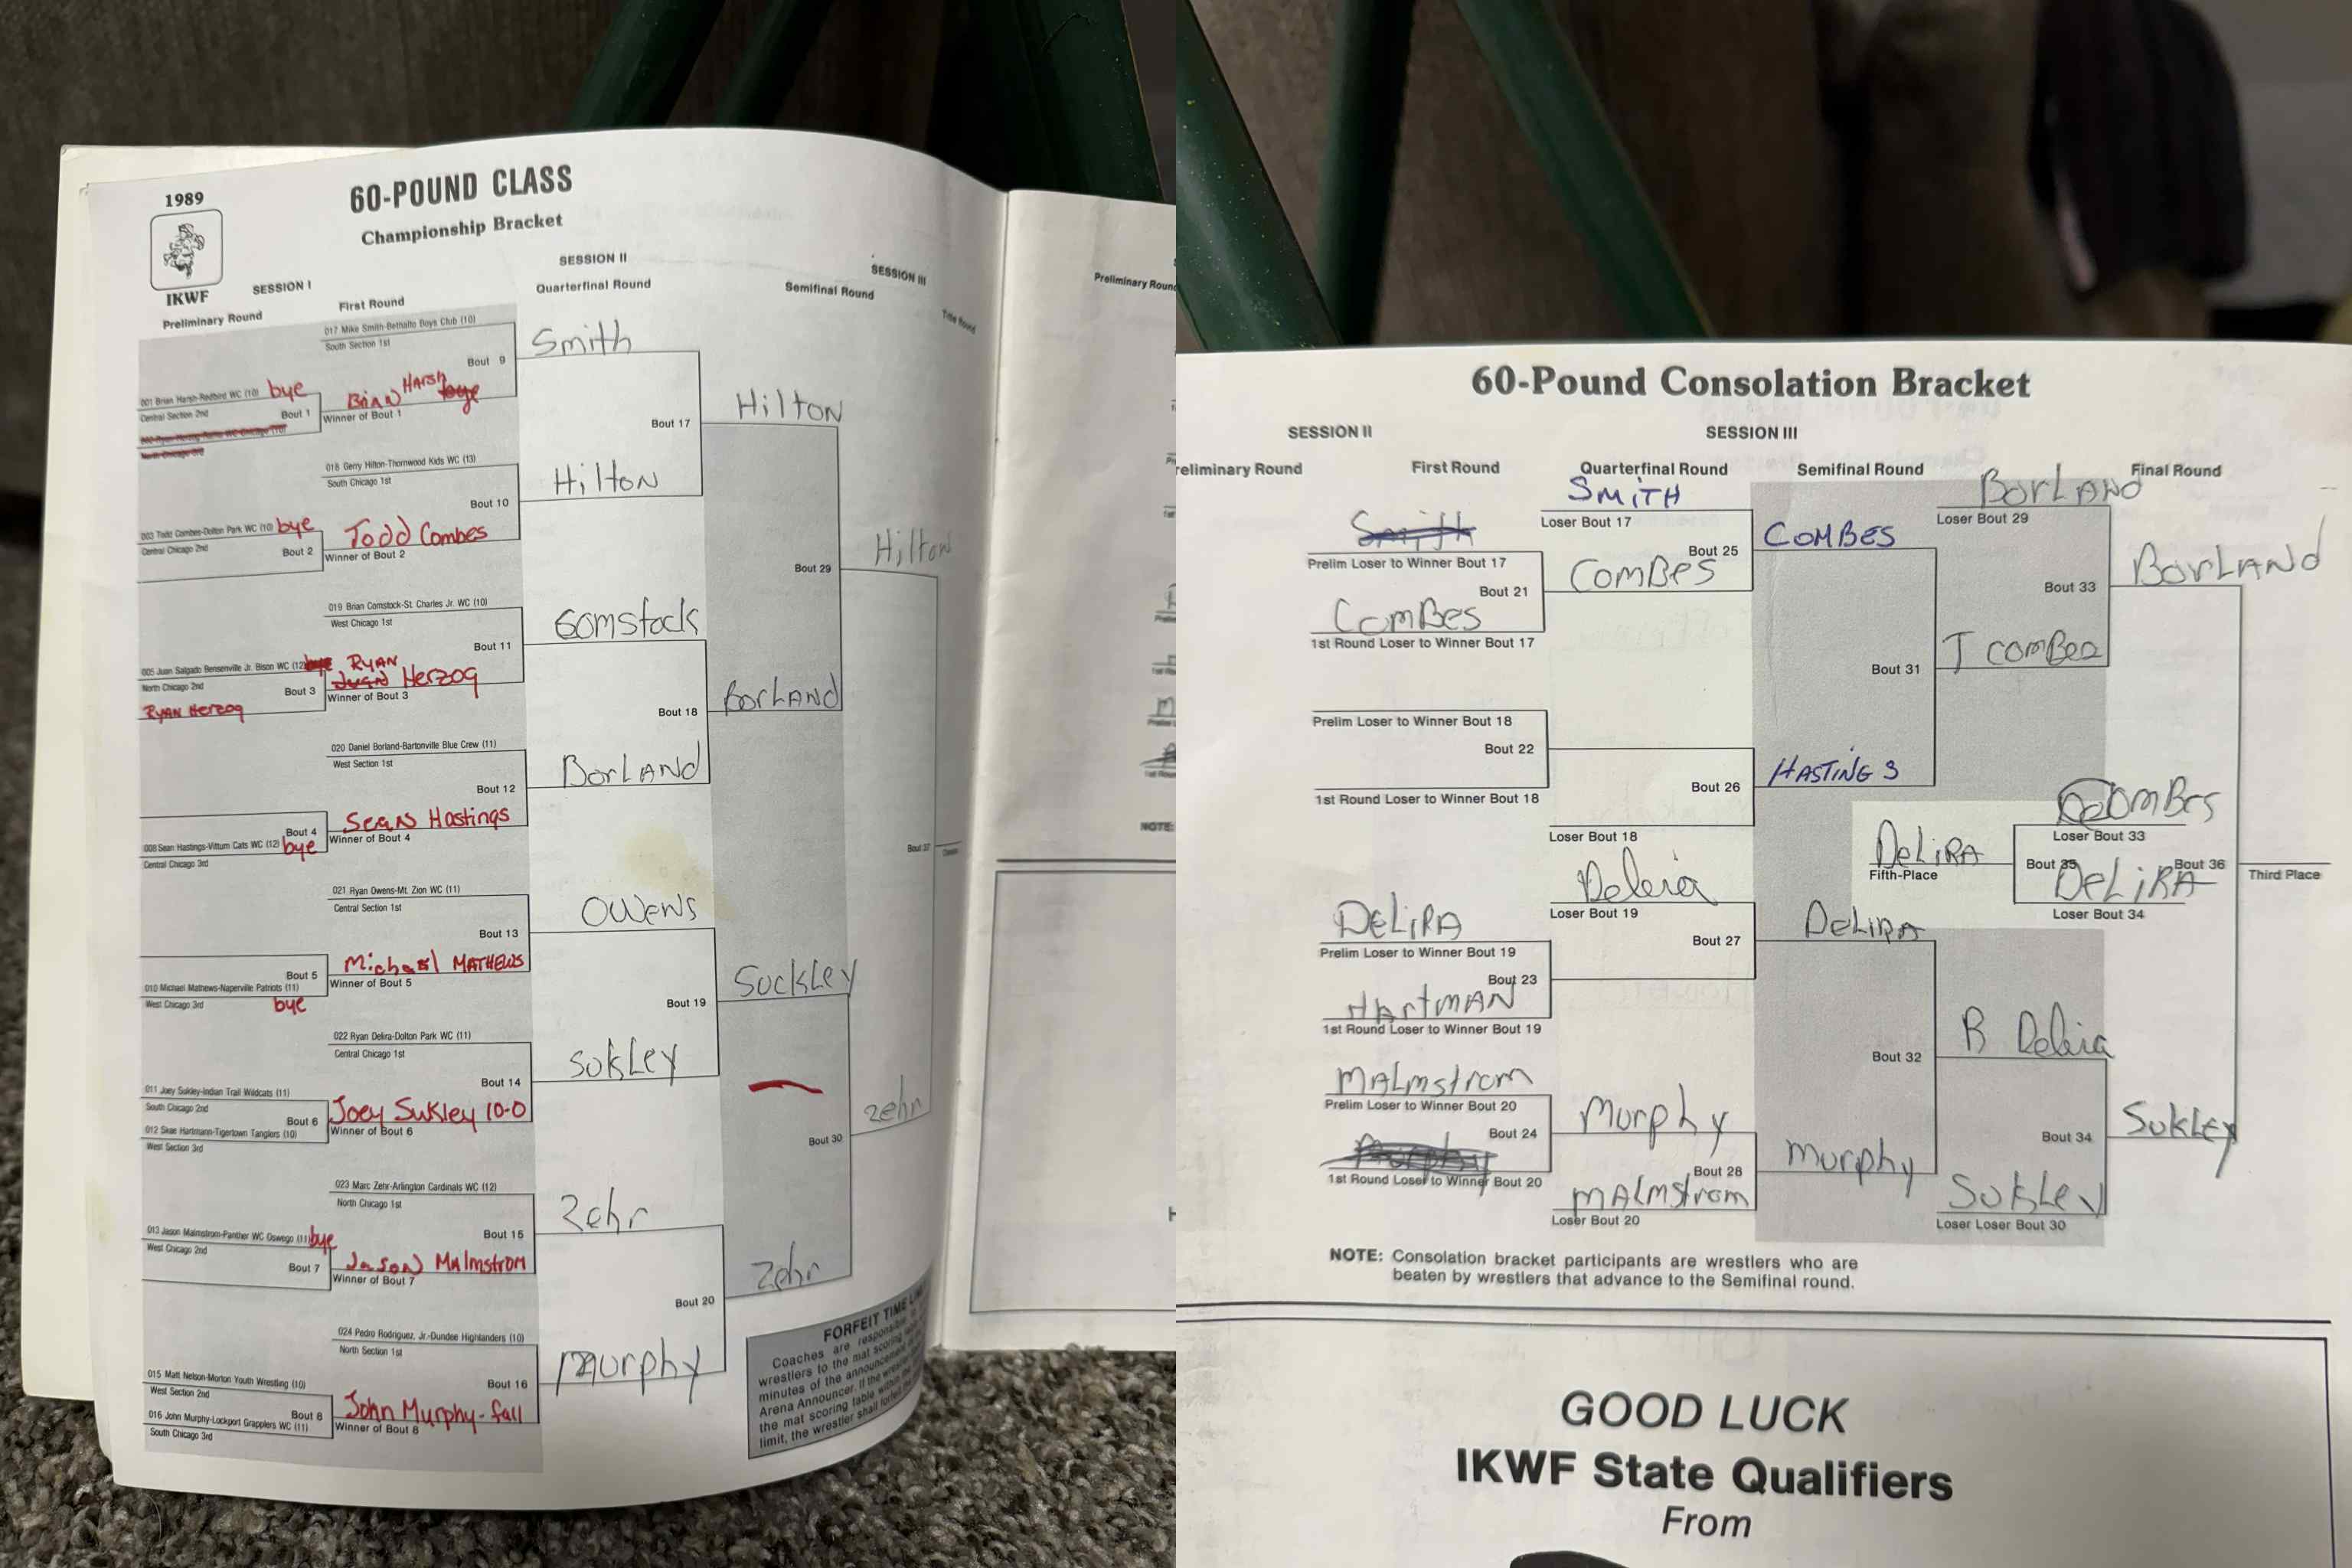 1989
IKWF
60-POUND CLASS
Championship Bracket
SESSION I
SESSION II
SESSION III
Preliminary Round
First Round
Quarterfinal Round
Semifinal Round
Title Round
017 Mike Smith-Bethalto Boys Club (10)
South Section 1st
Bout 9
Smith
001 Brian Harsh-Redbird WC (10) bye
Central Section 2nd
Bout 1
Brian Harsh
Winner of Bout 1
Bout 17
Hilton
018 Gerry Hilton-Thornwood Kids WC (13)
South Chicago 1st
Bout 10
Hilton
003 Todd Combes-Dolton Park WC (10) bye
Central Chicago 2nd
Bout 2
Todd Combes
Winner of Bout 2
Bout 29
Hilton
019 Brian Comstock-St. Charles Jr. WC (10)
West Chicago 1st
Bout 11
Comstock
005 Juan Salgado Bensenville Jr. Bison WC (12) bye
North Chicago 2nd
Bout 3
RYAN
Juan Herzog
Winner of Bout 3
RYAN Herzog
Bout 18
BorLANd
020 Daniel Borland-Bartonville Blue Crew (11)
West Section 1st
Bout 12
BorLANd
Bout 4
Sean Hastings
Winner of Bout 4
008 Sean Hastings-Vittum Cats WC (12) bye
Central Chicago 3rd
Bout 37
021 Ryan Owens-Mt. Zion WC (11)
Central Section 1st
Bout 13
OWENS
Bout 5
Michael MATHEWS
Winner of Bout 5
010 Michael Mathews-Naperville Patriots (11)
West Chicago 3rd
bye
Bout 19
SuckLey
022 Ryan Delira-Dolton Park WC (11)
Central Chicago 1st
Bout 14
SukLey
011 Joey Sukley-Indian Trail Wildcats (11)
South Chicago 2nd
Bout 6
Joey Sukley 10-0
Winner of Bout 6
012 Skae Hartmann-Tigertown Tanglers (10)
West Section 3rd
Bout 30
Zehr
023 Marc Zehr-Arlington Cardinals WC (12)
North Chicago 1st
Bout 15
Zehr
013 Jason Malmstrom-Panther WC Oswego (11) bye
West Chicago 2nd
Bout 7
Jason Malmstrom
Winner of Bout 7
Bout 20
Zehr
024 Pedro Rodriguez, Jr.-Dundee Highlanders (10)
North Section 1st
Bout 16
Murphy
015 Matt Nelson-Morton Youth Wrestling (10)
West Section 2nd
Bout 8
John Murphy-fall
Winner of Bout 8
016 John Murphy-Lockport Grapplers WC (11)
South Chicago 3rd
FORFEIT TIME
Coaches are responsible
wrestlers to the mat scoring
minutes of the announcement
Arena Announcer. If the wrestler
the mat scoring table within
limit, the wrestler shall forfeit
Preliminary Roun
NOTE:
60-Pound Consolation Bracket
SESSION II
SESSION III
reliminary Round
First Round
Quarterfinal Round
Semifinal Round
Final Round
Smith
Prelim Loser to Winner Bout 17
Bout 21
ComBes
1st Round Loser to Winner Bout 17
SMITH
Loser Bout 17
Bout 25
ComBes
COMBES
BorLANd
Loser Bout 29
Bout 33
BorLANd
Bout 31
T comBes
Prelim Loser to Winner Bout 18
Bout 22
1st Round Loser to Winner Bout 18
Bout 26
HASTINGS
Loser Bout 18
DeLiRA
Fifth-Place
ComBes
Loser Bout 33
Bout 35
DeLiRA
Loser Bout 34
Bout 36
Third Place
DeLiRA
Prelim Loser to Winner Bout 19
Bout 23
HArtmAN
1st Round Loser to Winner Bout 19
Deleria
Loser Bout 19
Bout 27
DeLiRA
Bout 32
R Deleria
MALmstrom
Prelim Loser to Winner Bout 20
Bout 24
Murphy
1st Round Loser to Winner Bout 20
Murphy
Bout 28
MALmstrom
Loser Bout 20
Murphy
Bout 34
SukLey
SukLey
Loser Loser Bout 30
NOTE: Consolation bracket participants are wrestlers who are
beaten by wrestlers that advance to the Semifinal round.
GOOD LUCK
IKWF State Qualifiers
From